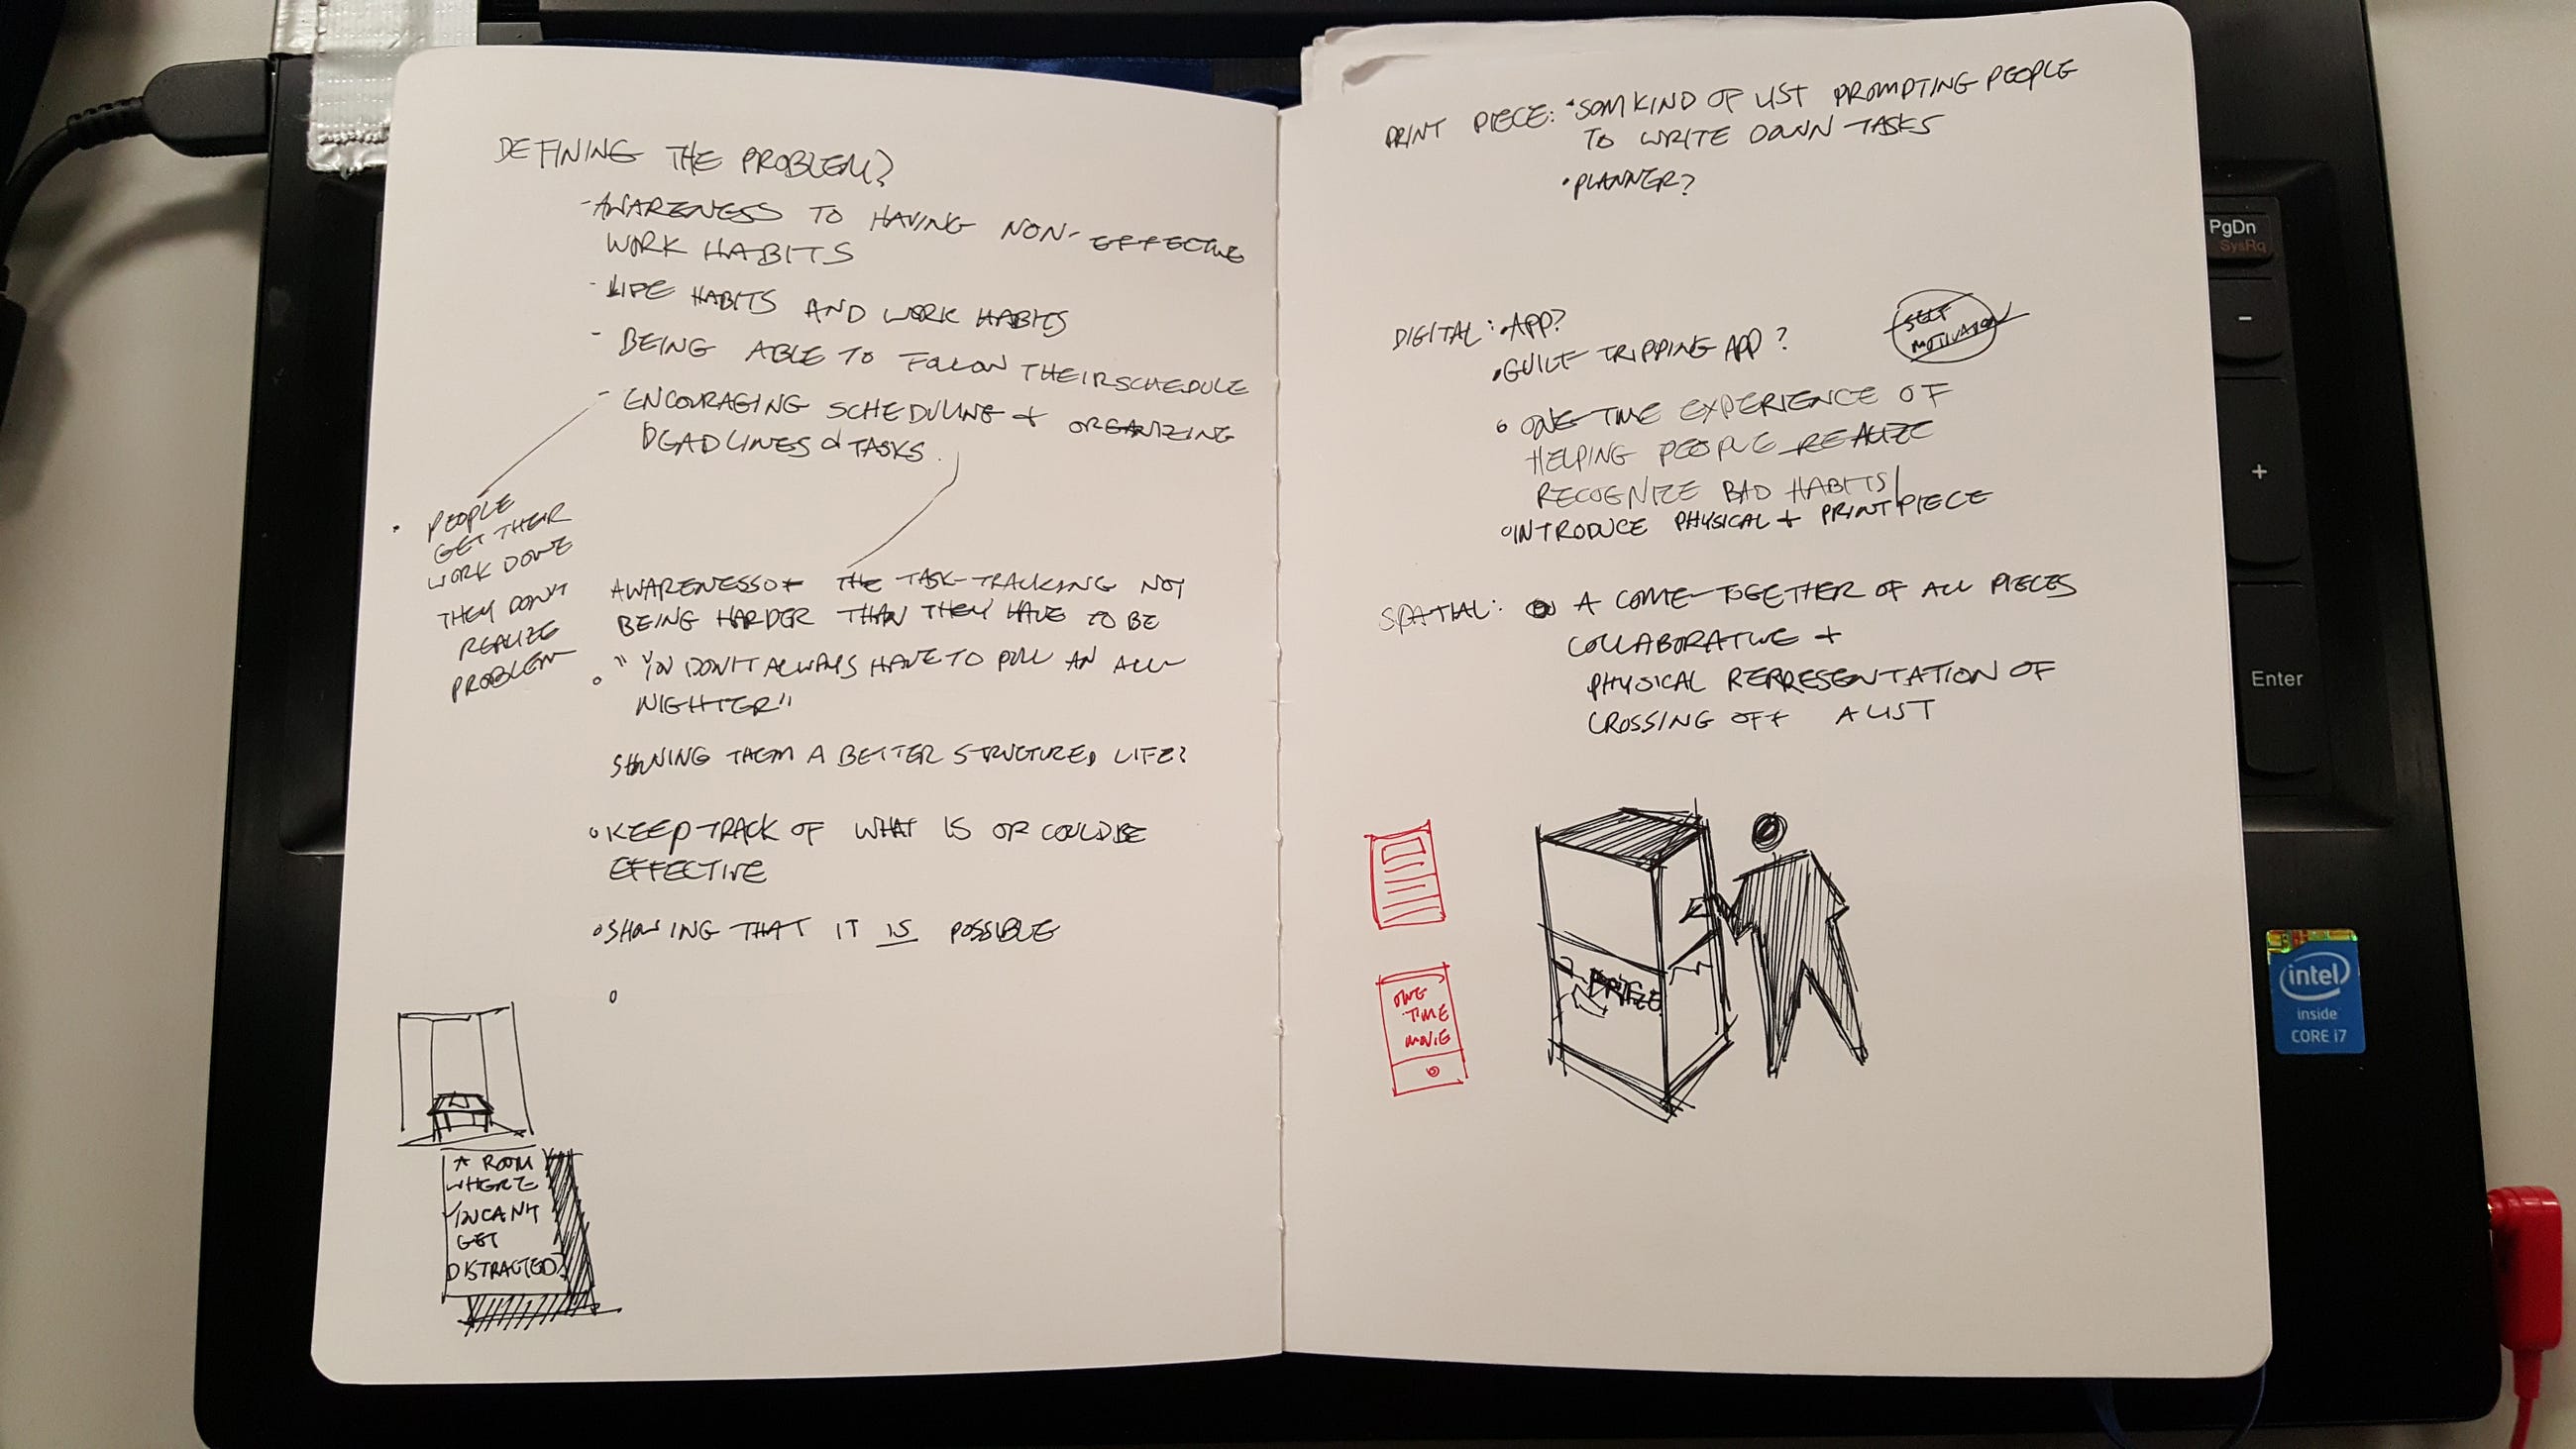 DEFINING THE PROBLEM?
-AWARENESS TO HAVING NON-EFFECTIVE
WORK HABITS
-LIFE HABITS AND WORK HABITS
- BEING ABLE TO FOLLOW THEIR SCHEDULE
- ENCOURAGING SCHEDULING + ORGANIZING
DEADLINES & TASKS.
• PEOPLE
GET THEIR
WORK DONE
THEY DON'T
REALIZE
PROBLEM
AWARENESS OF THE TASK-TRACKING NOT
BEING HARDER THAN THEY HAVE TO BE
" YOU DON'T ALWAYS HAVE TO PULL AN ALL-
NIGHTER"
SHOWING THEM A BETTER STRUCTURED LIFE?
KEEP TRACK OF WHAT IS OR COULD BE
EFFECTIVE
SHOWING THAT IT IS POSSIBLE
A ROOM
WHERE
YOU CAN'T
GET
DISTRACTED?
PRINT PIECE: •SOM KIND OF LIST PROMPTING PEOPLE
TO WRITE DOWN TASKS
•PLANNER?
DIGITAL: •APP?
•GUILT TRIPPING APP?
SELF
MOTIVATION
• ONE-TIME EXPERIENCE OF
HELPING PEOPLE REALIZE
RECOGNIZE BAD HABITS
INTRODUCE PHYSICAL + PRINT PIECE
SPATIAL: A COME-TOGETHER OF ALL PIECES
COLLABORATIVE +
PHYSICAL REPRESENTATION OF
CROSSING OFF A LIST
ONE
TIME
MOVIE
PRIZE
PgDn
SysRq
-
+
Enter
intel
inside
CORE i7